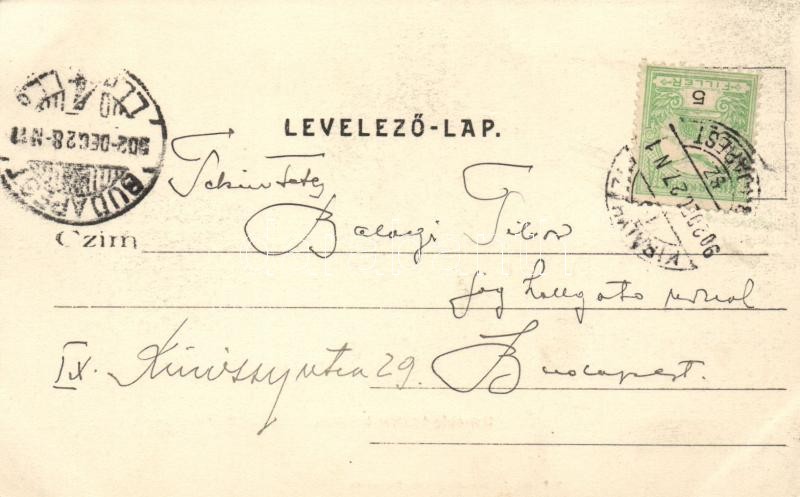 LEVELEZŐ-LAP.
FILLÉR
5
BUDAPEST
902 DEC 28
BUDAPEST
902 DE 27 N 1
Tekintetes
Balogi Tibor
Czim
jog hallgató urnak
IX. Kinizsy utca 29. Budapest.